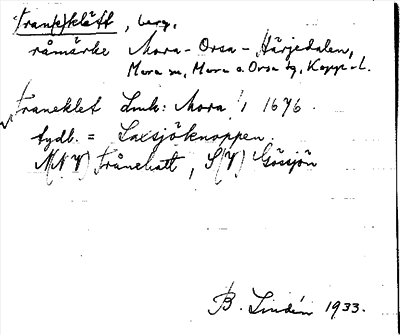 Tran(e)klätt, berg.
råmärke Mora - Orsa - Härjedalen,
Mora sn, Mora o Orsa tg, Kopp. L.
Traneklet Lmk: Mora 1 1676.
tydl. = Laxsjöknoppen.
N(NV) Trånehatt, S(V) Gässjön
B. Lindén 1933.